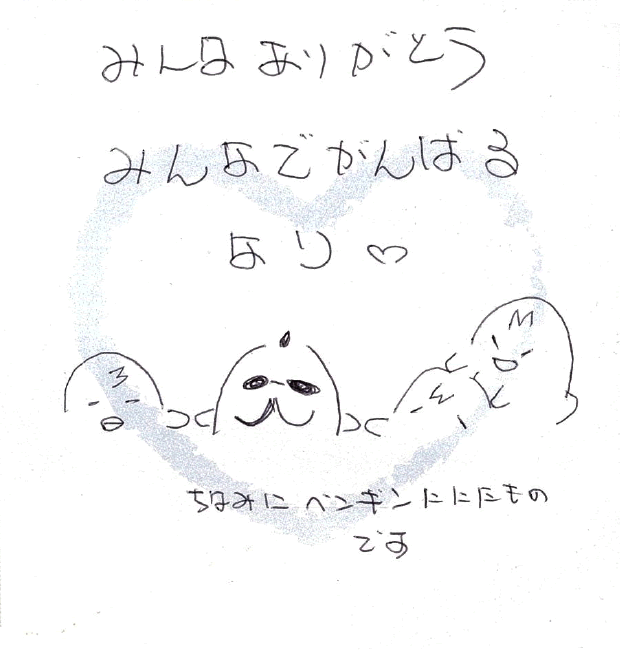 みんな ありがとう
みんなでがんばる
なり♡
ちなみに ペンギンににたもの
です